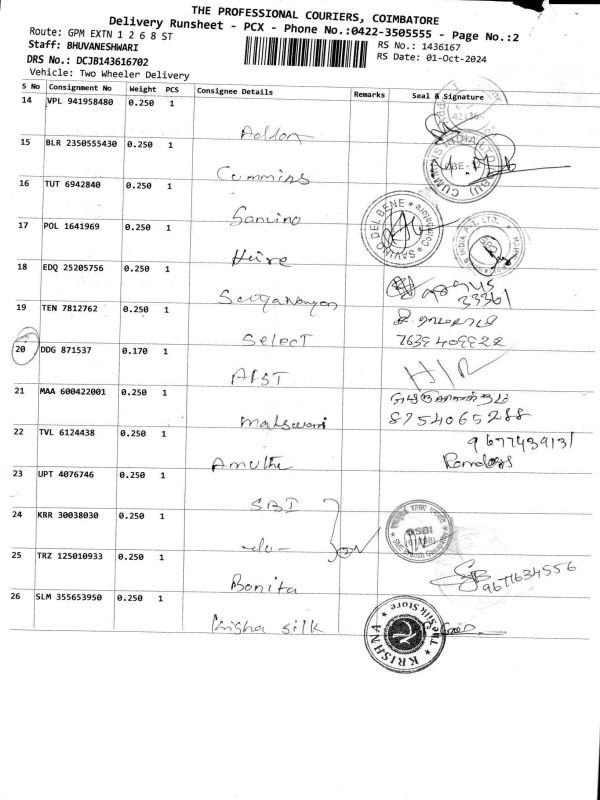 THE PROFESSIONAL COURIERS, COIMBATORE
Delivery Runsheet - PCX - Phone No.:0422-3505555 - Page No.:2
Route: GPM EXTN 1 2 6 8 ST
RS No.: 1436167
Staff: BHUVANESHWARI
RS Date: 01-Oct-2024
DRS No.: DCJB143616702
Vehicle: Two Wheeler Delivery
S No Consignment No Weight PCS Consignee Details Remarks Seal & Signature
14 VPL 941958480 0.250 1
15 BLR 2350555430 0.250 1
Cummins
16 TUT 6942840 0.250 1
Savino
SAVINO DEL BENE
17 POL 1641969 0.250 1
Hire
18 EDQ 25205756 0.250 1
33361
19 TEN 7812762 0.250 1
Select
7639409922
20 DDG 871537 0.170 1
H/R
21 MAA 600422001 0.250 1
8754065288
22 TVL 6124438 0.250 1
9677439131
Amutha
Ramdoss
23 UPT 4076746 0.250 1
SBI
24 KRR 30038030 0.250 1
SBI
-do-
25 TRZ 125010933 0.250 1
9677634556
Bonita
26 SLM 355653950 0.250 1
Krisha silk
KRISHNA The Silk Store